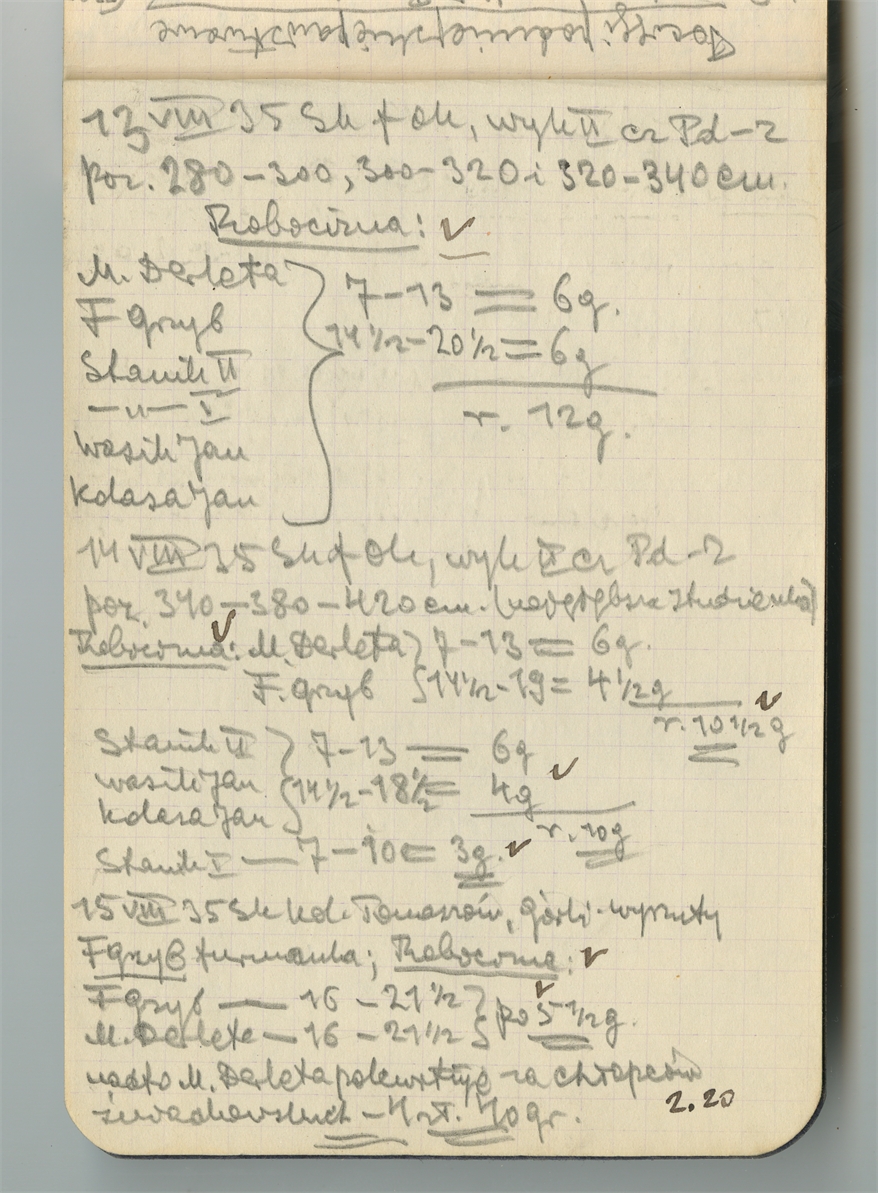 13 VIII 35 Sk f Ok, wyk II cz Pd-2
poz. 280-300, 300-320 i 320-340 cm.
Robocizna: ✓
M. Derleta } 7-13 = 6g.
F Grzyb 14½-20½ = 6g
Stanik II r. 12g.
-"- I
Wasik Jan
Kdasa Jan
14 VIII 35 Sk f Ok, wyk II cz Pd-2
poz. 340-380-420 cm. (najgłębsza studzienka)
Robocizna: ✓ M. Derleta } 7-13 = 6g.
F. Grzyb { 14½-19 = 4½g
r. 10½g ✓
Stanik II } 7-13 = 6g
Wasik Jan { 14½-18½ = 4g ✓
Kdasa Jan r. 10g
Stanik I - 7-10 = 3g. ✓
15 VIII 35 Sk kol. Tomaszów, Górki-
F Grzyb furmanka; Robocizna: ✓
F Grzyb - 16 - 21½ } po 5½g. ✓
M. Derleta - 16 - 21½
nadto M. Derleta za chłopców
- 4 zł. 40 gr. 2.20